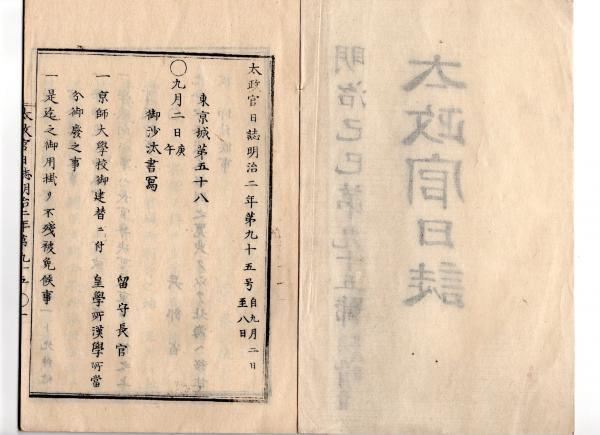 太政官日誌
明治己巳第九十五號
太政官日誌明治二年第九十五号 自九月二日 至八日
東京城第五十八
〇九月二日庚午
御沙汰書寫
留守長官
一 京師大學校御建替ニ付 皇學所漢學所當
分御廢之事
一 是迄之御用掛リ不残被免候事
太政官日誌明治二年第九十五 〇一